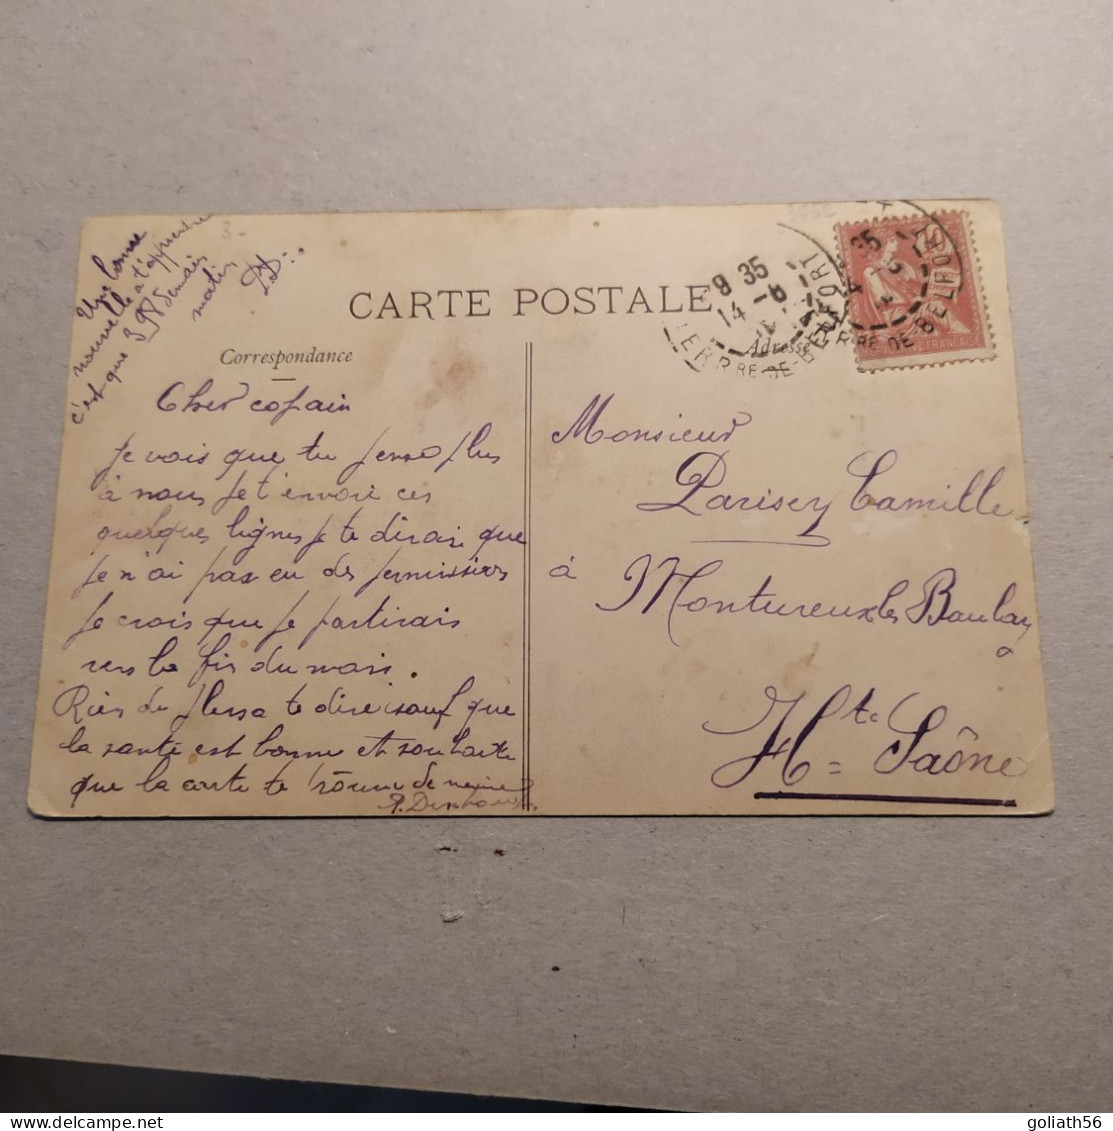 Une bonne
nouvelle a t'apprendre
c'est que 398 demain
matin
3-
CARTE POSTALE
Correspondance
Adresse
9 35
14 -6
TERRRE-DE-BELFORT
35
RRE DE BELFORT
RÉPUBLIQUE FRANÇAISE
Cher copain
Je vois que tu pense plus
à nous Je t'envoie ces
quelques lignes Je te dirai que
Je n'ai pas eu des permissions
Je crois que Je partirais
vers la fin du mois.
Rien de plus a te dire sauf que
la sante est bonne et souhaite
que la carte te trouve de meme
Monsieur
Parisey Camille
à Montureux les Baulay
Hte Saône
goliath56